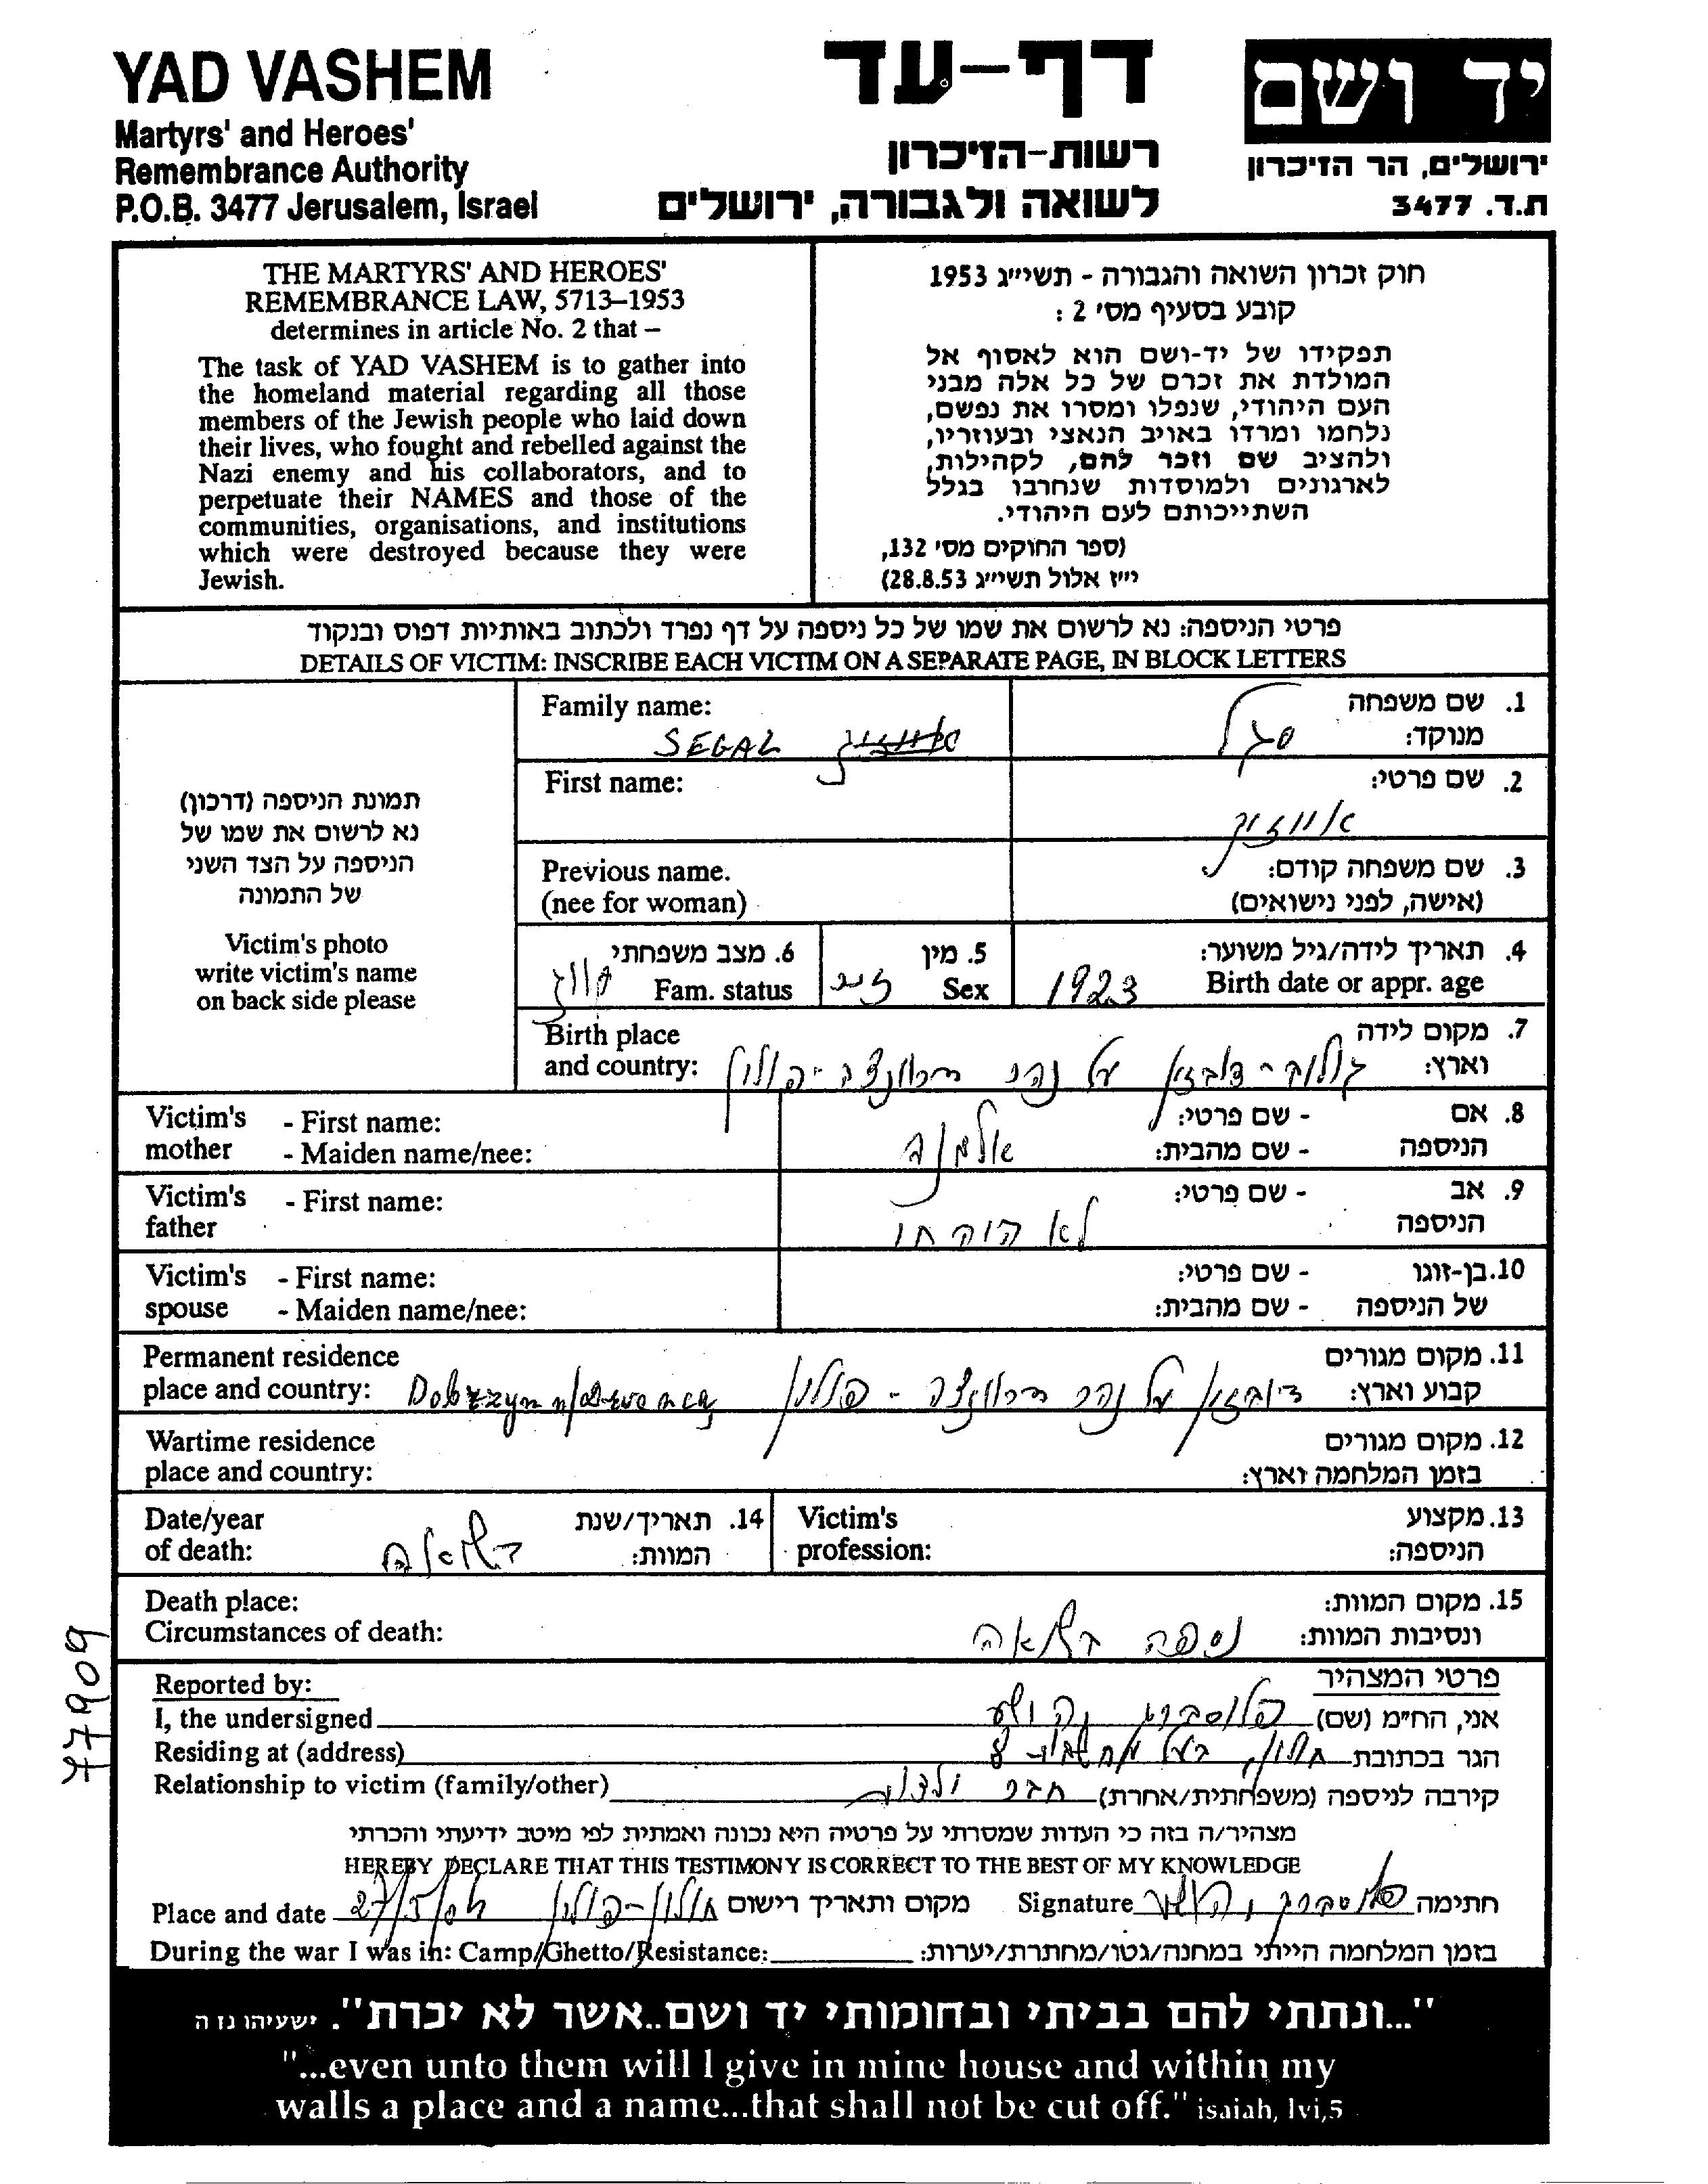 YAD VASHEM
Martyrs' and Heroes'
Remembrance Authority
P.O.B. 3477 Jerusalem, Israel
דף-עד
רשות-הזיכרון
לשואה ולגבורה, ירושלים
יד ושם
ירושלים, הר הזיכרון
ת.ד. 3477
THE MARTYRS' AND HEROES'
REMEMBRANCE LAW, 5713–1953
determines in article No. 2 that –
The task of YAD VASHEM is to gather into
the homeland material regarding all those
members of the Jewish people who laid down
their lives, who fought and rebelled against the
Nazi enemy and his collaborators, and to
perpetuate their NAMES and those of the
communities, organisations, and institutions
which were destroyed because they were
Jewish.
חוק זכרון השואה והגבורה - תשי״ג 1953
קובע בסעיף מס׳ 2 :
תפקידו של יד-ושם הוא לאסוף אל
המולדת את זכרם של כל אלה מבני
העם היהודי, שנפלו ומסרו את נפשם,
נלחמו ומרדו באויב הנאצי ובעוזריו,
ולהציב שם וזכר להם, לקהילות,
לארגונים ולמוסדות שנחרבו בגלל
השתייכותם לעם היהודי.
(ספר החוקים מס׳ 132,
י״ז אלול תשי״ג 28.8.53)
פרטי הניספה: נא לרשום את שמו של כל ניספה על דף נפרד ולכתוב באותיות דפוס ובנקוד
DETAILS OF VICTIM: INSCRIBE EACH VICTIM ON A SEPARATE PAGE, IN BLOCK LETTERS
תמונת הניספה (דרכון)
נא לרשום את שמו של
הניספה על הצד השני
של התמונה
Victim's photo
write victim's name
on back side please
1. שם משפחה מנוקד: סגל
Family name: SEGAL
2. שם פרטי:
First name:
3. שם משפחה קודם:
(אישה, לפני נישואים)
Previous name.
(nee for woman)
4. תאריך לידה/גיל משוער:
Birth date or appr. age 1923
5. מין
Sex
6. מצב משפחתי
Fam. status
7. מקום לידה
וארץ: על נהר דרוונצה - פולין
Birth place
and country:
8. אם הניספה - שם פרטי:
- שם מהבית:
Victim's mother - First name:
- Maiden name/nee:
9. אב הניספה - שם פרטי:
Victim's father - First name:
10. בן-זוגו של הניספה - שם פרטי:
- שם מהבית:
Victim's spouse - First name:
- Maiden name/nee:
11. מקום מגורים
קבוע וארץ: דוברזין על נהר דרוונצה - פולין
Permanent residence
place and country: Dobrzyn n/Drwencą
12. מקום מגורים
בזמן המלחמה וארץ:
Wartime residence
place and country:
13. מקצוע
הניספה:
Victim's
profession:
14. תאריך/שנת
המוות: בשואה
Date/year
of death:
15. מקום המוות:
ונסיבות המוות: נספה בשואה
Death place:
Circumstances of death:
77909
פרטי המצהיר
Reported by:
אני, הח״מ (שם) יהושע
I, the undersigned
הגר בכתובת חולון, בעל מחשבות 8
Residing at (address)
קירבה לניספה (משפחתית/אחרת) חבר ילדות
Relationship to victim (family/other)
מצהיר/ה בזה כי העדות שמסרתי על פרטיה היא נכונה ואמתית לפי מיטב ידיעתי והכרתי
HEREBY DECLARE THAT THIS TESTIMONY IS CORRECT TO THE BEST OF MY KNOWLEDGE
חתימה
Signature
מקום ותאריך רישום חולון-פולין
Place and date
בזמן המלחמה הייתי במחנה/גטו/מחתרת/יערות:
During the war I was in: Camp/Ghetto/Resistance:
"...ונתתי להם בביתי ובחומותי יד ושם..אשר לא יכרת". ישעיהו נז ה
"...even unto them will I give in mine house and within my
walls a place and a name...that shall not be cut off." isaiah, lvi,5